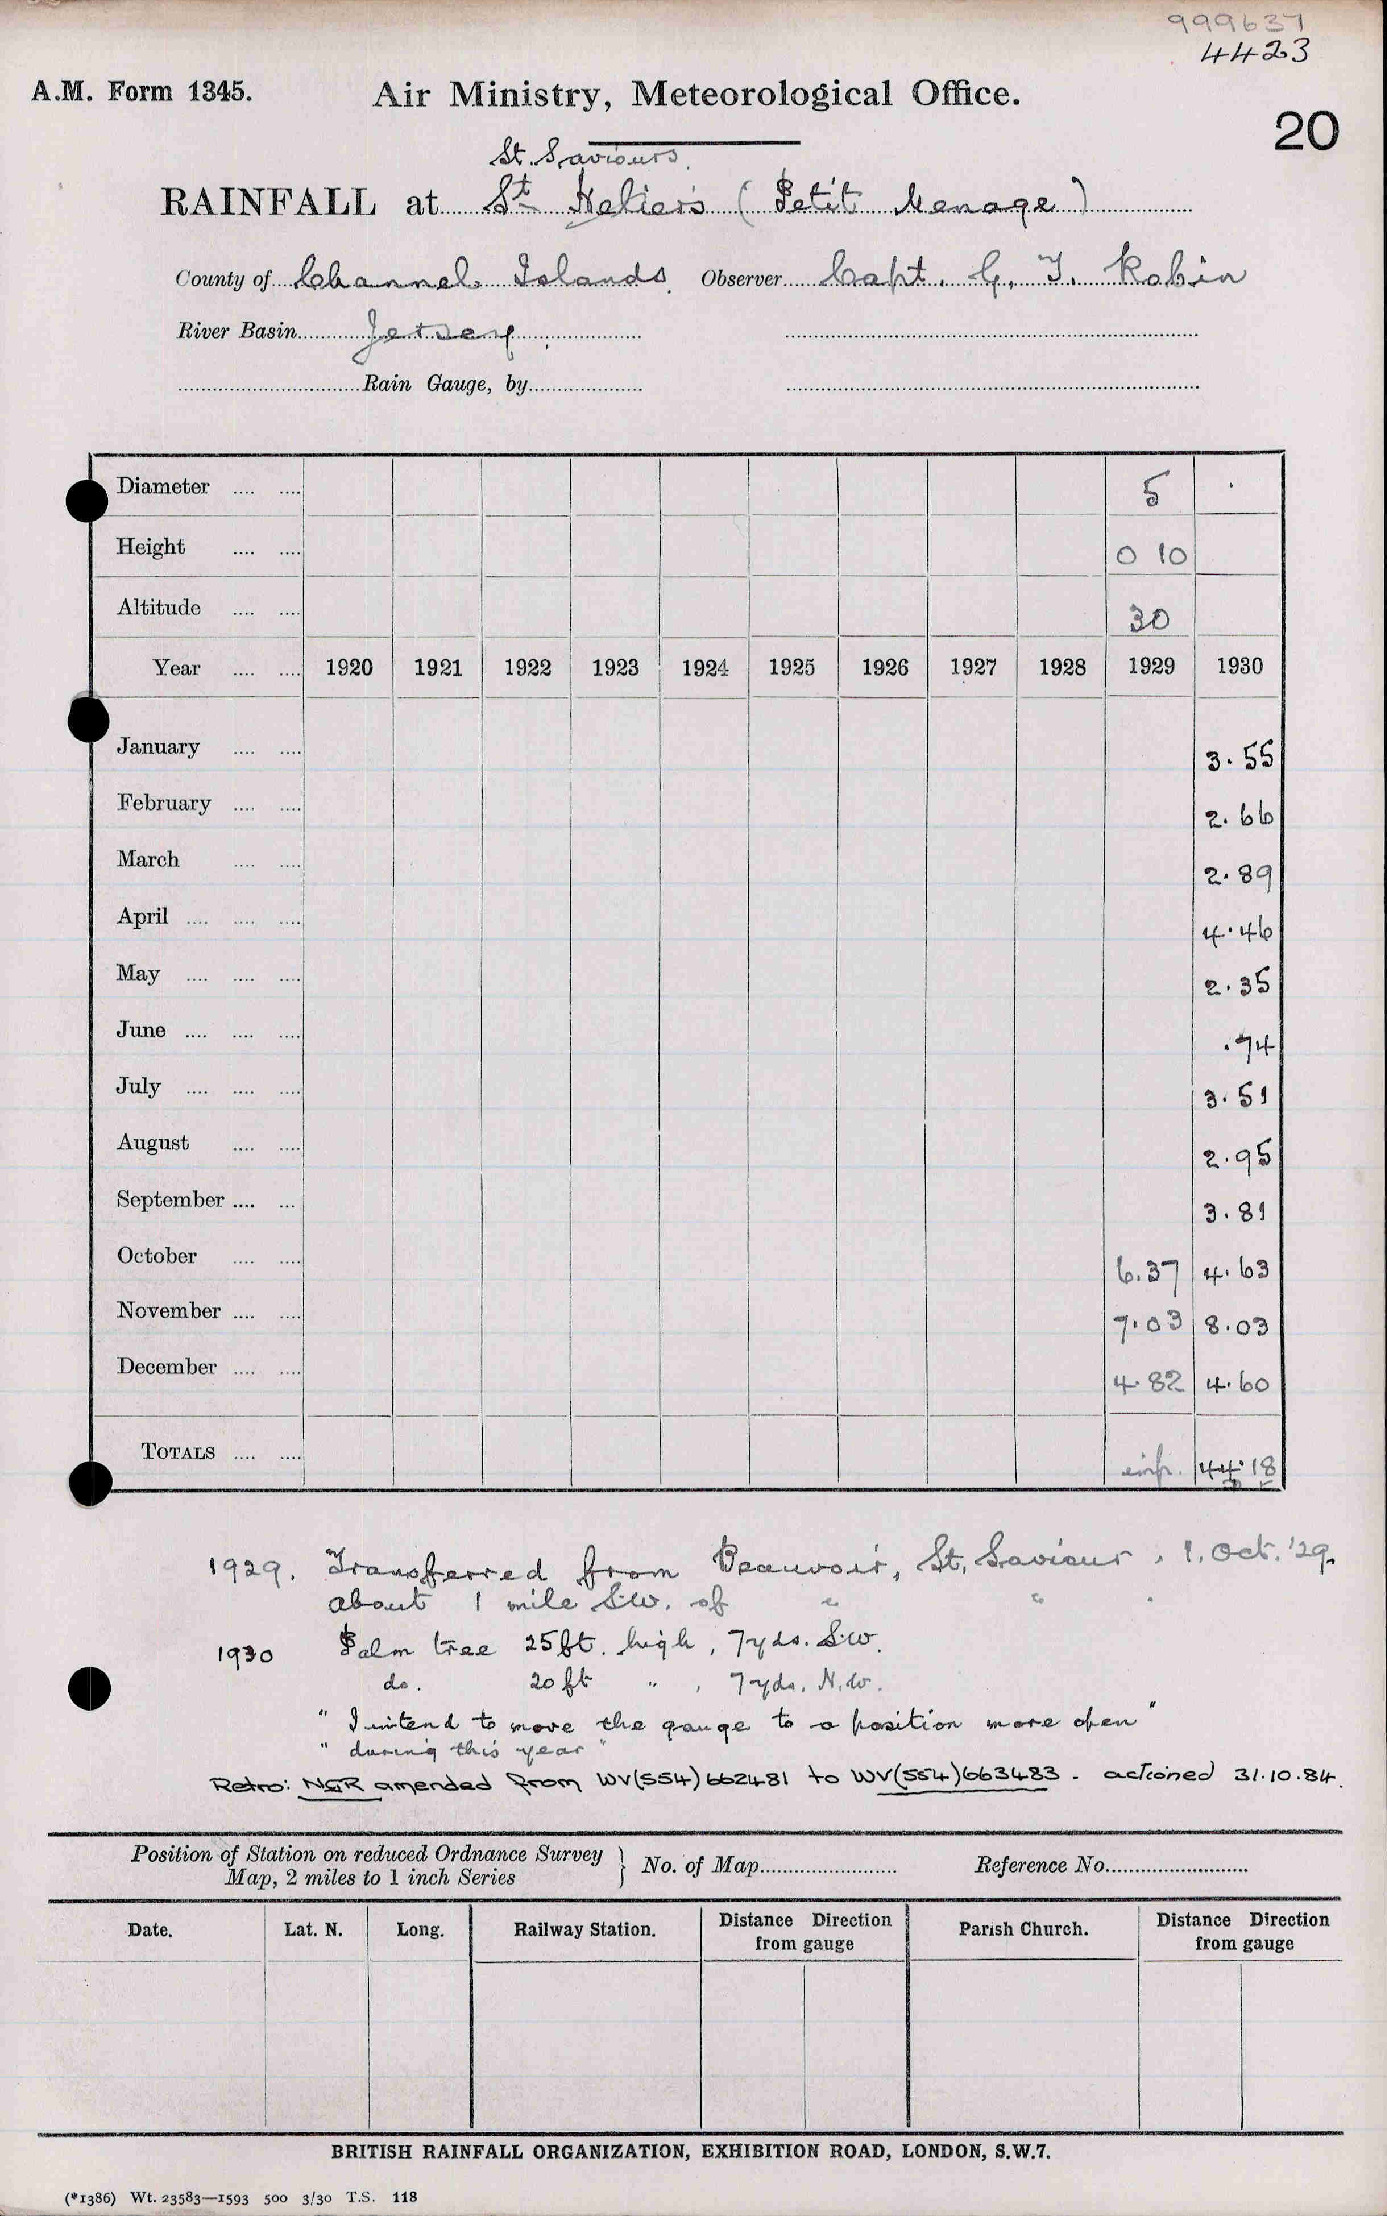 999637
4423
A.M. Form 1345. Air Ministry, Meteorological Office.
20
St. Saviours.
RAINFALL at St Heliers (Petit Menage)
County of Channel Islands Observer Capt. G. T. Robin
River Basin Jersey
Rain Gauge, by
Diameter 5 .
Height 0 10
Altitude 30
Year 1920 1921 1922 1923 1924 1925 1926 1927 1928 1929 1930
January 3.55
February 2.66
March 2.89
April 4.46
May 2.35
June .74
July 3.51
August 2.95
September 3.81
October 6.37 4.63
November 7.03 8.03
December 4.82 4.60
TOTALS 44.18
1929. Transferred from Beauvoir, St. Saviour, 1. Oct. '29.
about 1 mile S.W. of " " .
1930 Palm tree 25 ft. high, 7 yds. S.W.
do. 20 ft " , 7 yds. N.W.
" I intend to move the gauge to a position more open "
" during this year "
Retro: NGR amended from WV(554)662481 to WV(554)663483 - actioned 31.10.84.
Position of Station on reduced Ordnance Survey
Map, 2 miles to 1 inch Series } No. of Map Reference No.
Date. Lat. N. Long. Railway Station. Distance Direction from gauge Parish Church. Distance Direction from gauge
BRITISH RAINFALL ORGANIZATION, EXHIBITION ROAD, LONDON, S.W.7.
(*1386) Wt. 23583—1593 500 3/30 T.S. 118